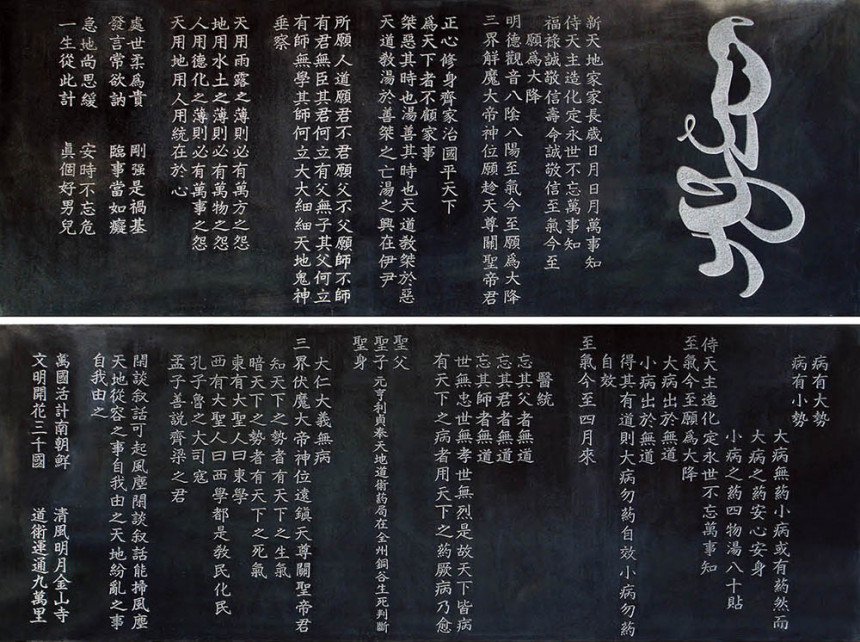 新天地家家長歲日月日月萬事知
侍天主造化定永世不忘萬事知
福祿誠敬信壽命誠敬信至氣今至
願爲大降
明德觀音八陰八陽至氣今至願爲大降
三界解魔大帝神位願趁天尊關聖帝君
正心修身齊家治國平天下
爲天下者不顧家事
桀惡其時也湯善其時也天道敎桀於惡
天道敎湯於善桀之亡湯之興在伊尹
所願人道願君不君願父不父願師不師
有君無臣其君何立有父無子其父何立
有師無學其師何立大大細細天地鬼神
垂察
天用雨露之薄則必有萬方之怨
地用水土之薄則必有萬物之怨
人用德化之薄則必有萬事之怨
天用地用人用統在於心
處世柔爲貴 剛强是禍基
發言常欲訥 臨事當如癡
急地尚思緩 安時不忘危
一生從此計 眞個好男兒
病有大勢
病有小勢
大病無葯小病或有葯然而
大病之葯安心安身
小病之葯四物湯八十貼
侍天主造化定永世不忘萬事知
至氣今至願爲大降
大病出於無道
小病出於無道
得其有道則大病勿葯自效小病勿葯
自效
至氣今至四月來
醫統
忘其父者無道
忘其君者無道
忘其師者無道
世無忠世無孝世無烈是故天下皆病
有天下之病者用天下之葯厥病乃愈
聖父
聖子 元亨利貞奉天地道術葯局在全州銅谷生死判斷
聖身
大仁大義無病
三界伏魔大帝神位遠鎭天尊關聖帝君
知天下之勢者有天下之生氣
暗天下之勢者有天下之死氣
東有大聖人曰東學
西有大聖人曰西學都是敎民化民
孔子魯之大司寇
孟子善說齊梁之君
閑談叙話可起風塵閑談叙話能掃風塵
天地從容之事自我由之天地紛亂之事
自我由之
萬國活計南朝鮮 淸風明月金山寺
文明開花三千國 道術運通九萬里